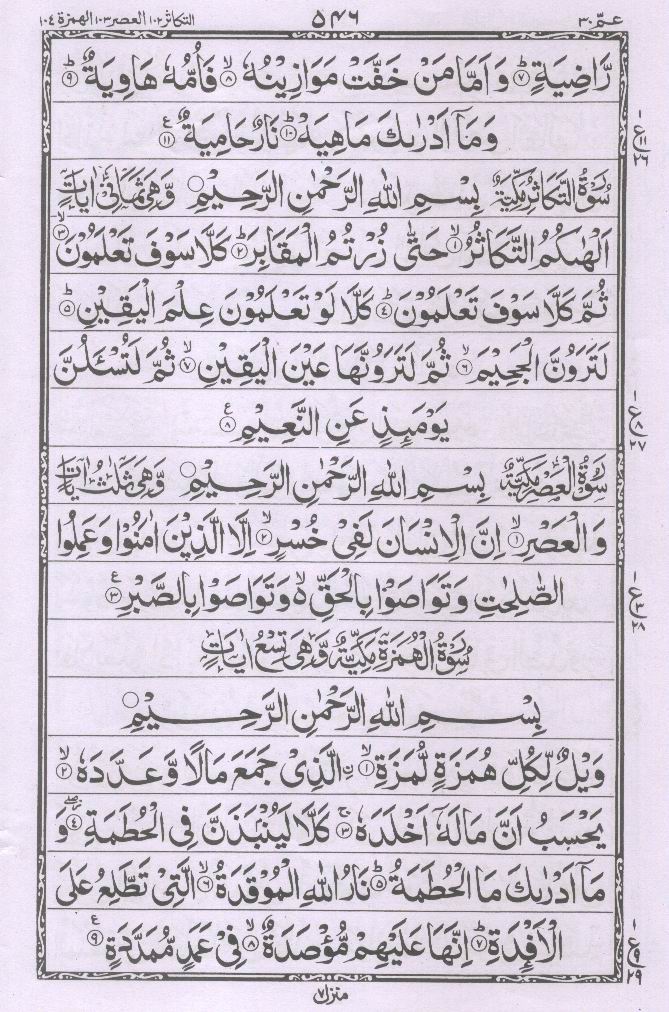 عمّ ٣٠ ٥٤٦ التكاثر ١٠٢ العصر ١٠٣ الهمزة ١٠٤
رَّاضِيَةٍ ؕ‏﴿۷﴾ وَاَمَّا مَنْ خَفَّتْ مَوَازِيْنُهٗ ۙ‏﴿۸﴾ فَاُمُّهٗ هَاوِيَةٌ ؕ‏﴿۹﴾
وَمَاۤ اَدْرٰٮكَ مَاهِيَهْ ؕ‏﴿۱۰﴾ نَارٌ حَامِيَةٌ ‏﴿۱۱﴾ ع
ع ١١ ٢٦
سُوْرَةُ التَّكَاثُرِ مَكِّيَّةٌ بِسْمِ اللهِ الرَّحْمٰنِ الرَّحِيْمِ وَّهِىَ ثَمَانِىْ اٰيَاتٍ
اَلْهٰٮكُمُ التَّكَاثُرُ ۙ‏﴿۱﴾ حَتّٰى زُرْتُمُ الْمَقَابِرَ ؕ‏﴿۲﴾ كَلَّا سَوْفَ تَعْلَمُوْنَ ۙ‏﴿۳﴾
ثُمَّ كَلَّا سَوْفَ تَعْلَمُوْنَ ؕ‏﴿۴﴾ كَلَّا لَوْ تَعْلَمُوْنَ عِلْمَ الْيَقِيْنِ ؕ‏﴿۵﴾
لَتَرَوُنَّ الْجَحِيْمَ ۙ‏﴿۶﴾ ثُمَّ لَتَرَوُنَّهَا عَيْنَ الْيَقِيْنِ ۙ‏﴿۷﴾ ثُمَّ لَتُسْـَٔلُنَّ
يَوْمَٮِٕذٍ عَنِ النَّعِيْمِ ‏﴿۸﴾ ع
ع ٨ ٢٧
سُوْرَةُ الْعَصْرِ مَكِّيَّةٌ بِسْمِ اللهِ الرَّحْمٰنِ الرَّحِيْمِ وَّهِىَ ثَلٰثُ اٰيَاتٍ
وَالْعَصْرِ ۙ‏﴿۱﴾ اِنَّ الْاِنْسَانَ لَفِىْ خُسْرٍ ۙ‏﴿۲﴾ اِلَّا الَّذِيْنَ اٰمَنُوْا وَعَمِلُوا
الصّٰلِحٰتِ وَتَوَاصَوْا بِالْحَقِّ ۙ وَتَوَاصَوْا بِالصَّبْرِ ‏﴿۳﴾ ع
ع ٣ ٢٨
سُوْرَةُ الْهُمَزَةِ مَكِّيَّةٌ وَّهِىَ تِسْعُ اٰيَاتٍ
بِسْمِ اللهِ الرَّحْمٰنِ الرَّحِيْمِ
وَيْلٌ لِّكُلِّ هُمَزَةٍ لُّمَزَةِ ۙ‏﴿۱﴾ ۨالَّذِىْ جَمَعَ مَالًا وَّعَدَّدَهٗ ۙ‏﴿۲﴾
يَحْسَبُ اَنَّ مَالَهٗۤ اَخْلَدَهٗ ۚ‏﴿۳﴾ كَلَّا لَيُنْۢبَذَنَّ فِى الْحُطَمَةِ ۖ‏﴿۴﴾ وَ
مَاۤ اَدْرٰٮكَ مَا الْحُطَمَةُ ؕ‏﴿۵﴾ نَارُ اللهِ الْمُوْقَدَةُ ۙ‏﴿۶﴾ الَّتِىْ تَطَّلِعُ عَلَى
الْاَفْـِٕدَةِ ؕ‏﴿۷﴾ اِنَّهَا عَلَيْهِمْ مُّؤْصَدَةٌ ۙ‏﴿۸﴾ فِىْ عَمَدٍ مُّمَدَّدَةٍ ‏﴿۹﴾ ع
ع ٩ ٢٩
منزل ٧